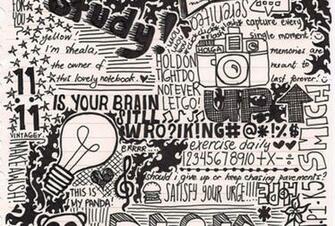 FOR
YOU
Study!
yellow
I'm Sheila,
the owner of
this lovely notebook.
HOLD ON
TIGHT DO
NOT EVER
LET GO!
capture every
single moment.
memories are
meant to
last forever!
HOLGA
11
11
VINTAGE
MAKE A WISH!
IS YOUR BRAIN
STILL
WRO?IKING#@*!%$
exercise daily
12345678910+X-÷
BRRR...
THIS IS
MY PANDA!
should i give up or keep chasing pavements?
SATISFY YOUR URGE!!!!